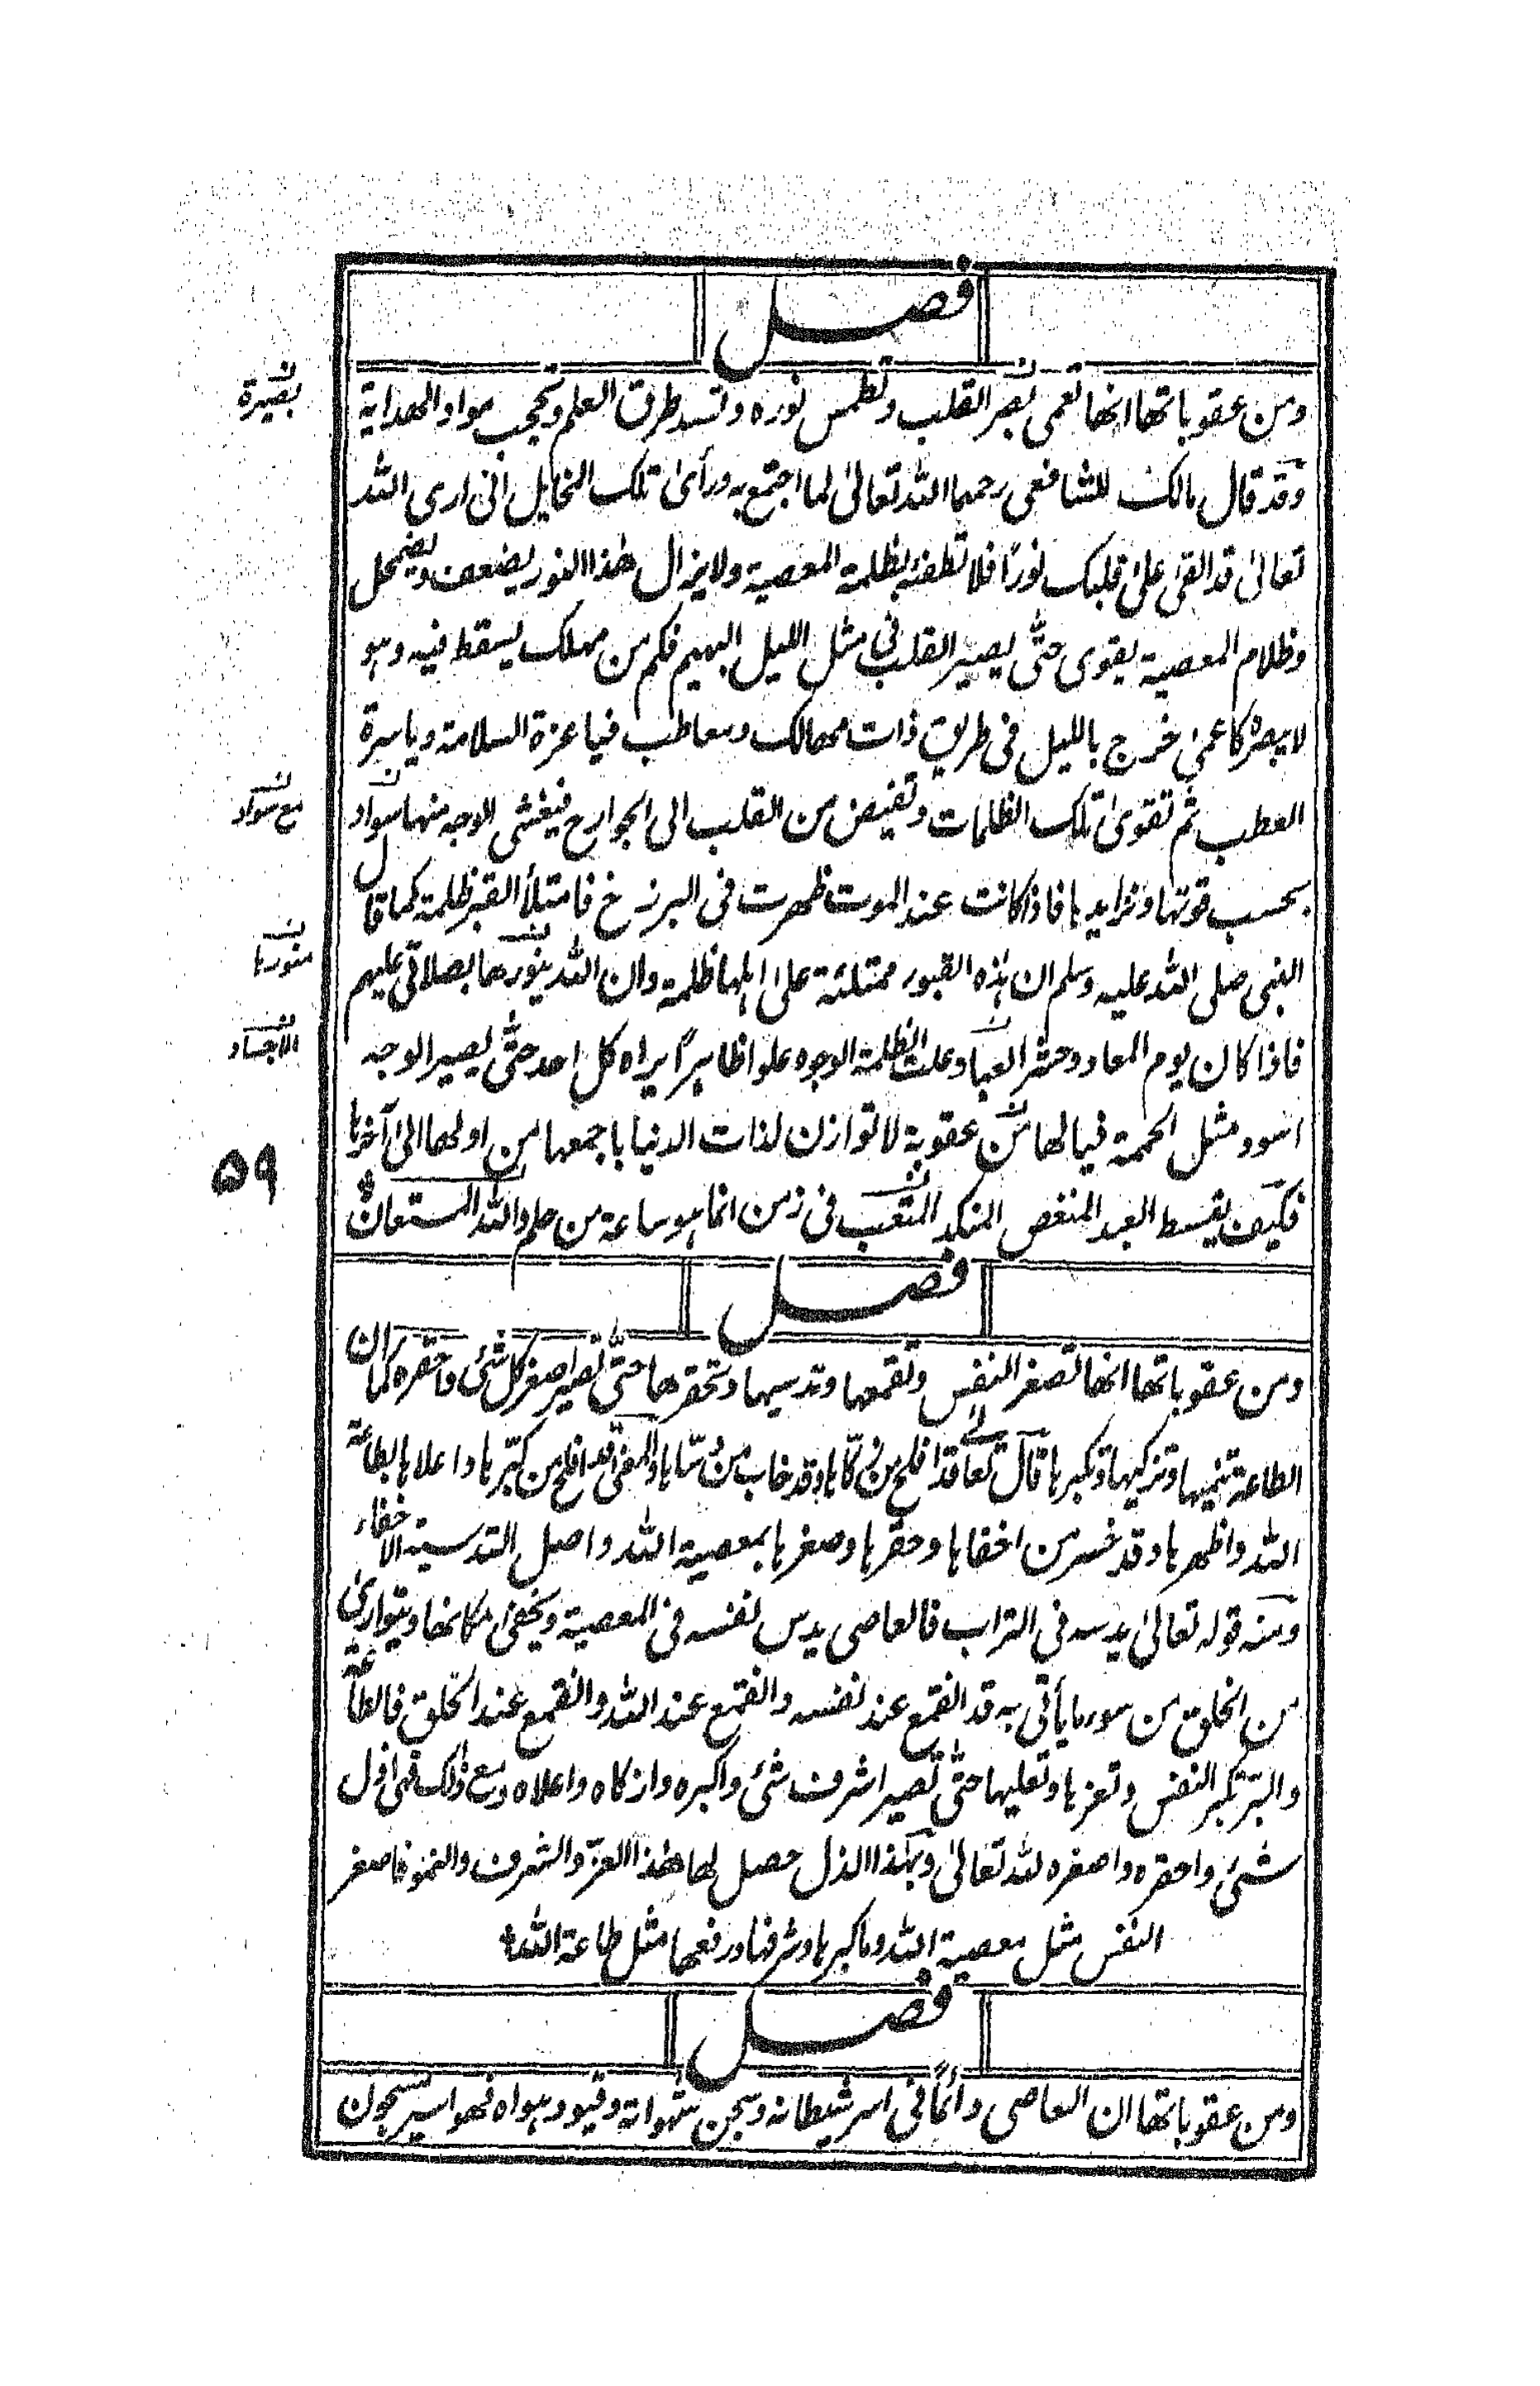 فصل
ومن عقوباتها انها تعمى بصر القلب وتطمس نوره وتسد طرق العلم وتحجب مواد الهداية
وقد قال مالك للشافعي رحمهما الله تعالىٰ لما اجتمع به ورأىٰ تلك المخايل انى ارى الله
تعالىٰ قد القىٰ علىٰ قلبك نورًا فلا تطفئه بظلمة المعصية ولا يزال هٰذا النور يضعف ويضمحل
وظلام المعصية يقوى حتّٰى يصير القلب فى مثل الليل البهيم فكم من مهلك يسقط فيه وهو
لا يبصره كاعمىٰ خرج بالليل فى طريق ذات مهالك ومعاطب فيا عزة السلامة ويا سرة
العطب ثم تقوىٰ تلك الظلمات وتفيض من القلب الى الجوارح فيغشى الوجه منها سواد
بحسب قوتها وتزايدها فاذا كانت عند الموت ظهرت فى البرزخ فامتلأ القبر ظلمة كما قال
النبى صلى الله عليه وسلم ان هٰذه القبور ممتلئة علىٰ اهلها ظلمة وان الله ينورها بصلاتى عليهم
فاذا كان يوم المعاد وحشر العباد وعلت الظلمة الوجوه علوا ظاهرًا يراه كل احد حتّٰى يصير الوجه
اسود مثل الحممة فيا لها من عقوبة لا توازن لذات الدنيا باجمعها من اولها الىٰ آخرها
فكيف بقسط العبد المنغص المنكد المتعب فى زمن انما هو ساعة من حلم والله المستعان
فصل
ومن عقوباتها انها تصغر النفس وتقمعها وتدسيها وتحقرها حتّٰى تصير اصغر كل شئ واحقره كما ان
الطاعة تنميها وتزكيها وتكبرها قال تعالےٰ قد افلح من زكّاها وقد خاب من دسّاها والمعنىٰ قد افلح من كبّرها واعلاها بطاعة
الله واظهرها وقد خسر من اخفاها وحقرها وصغرها بمعصية الله واصل التدسية الاخفاء
ومنه قوله تعالىٰ يدسه فى التراب فالعاصى يدس نفسه فى المعصية ويخفىٰ مكانها ويتوارىٰ
من الخلق من سوء ما يأتى به قد انقمع عند نفسه وانقمع عند الله وانقمع عند الخلق فالطاعة
والبرّ تكبر النفس وتعزها وتعليها حتّٰى تصير اشرف شئ واكبره وازكاه واعلاه ومع ذٰلك فهى اذل
شئ واحقره واصغره لله تعالىٰ وبهٰذا الذل حصل لها هٰذا العزّ والشرف والنمو فما صغر
النفس مثل معصية الله وما كبرها وشرفها ورفعها مثل طاعة الله
فصل
ومن عقوباتها ان العاصى دائمًا فى اسر شيطانه وسجن شهواته وقيود هواه فهو اسير مسجون
بصيرة
مع سواد
منورها
الاجساد
۵۹